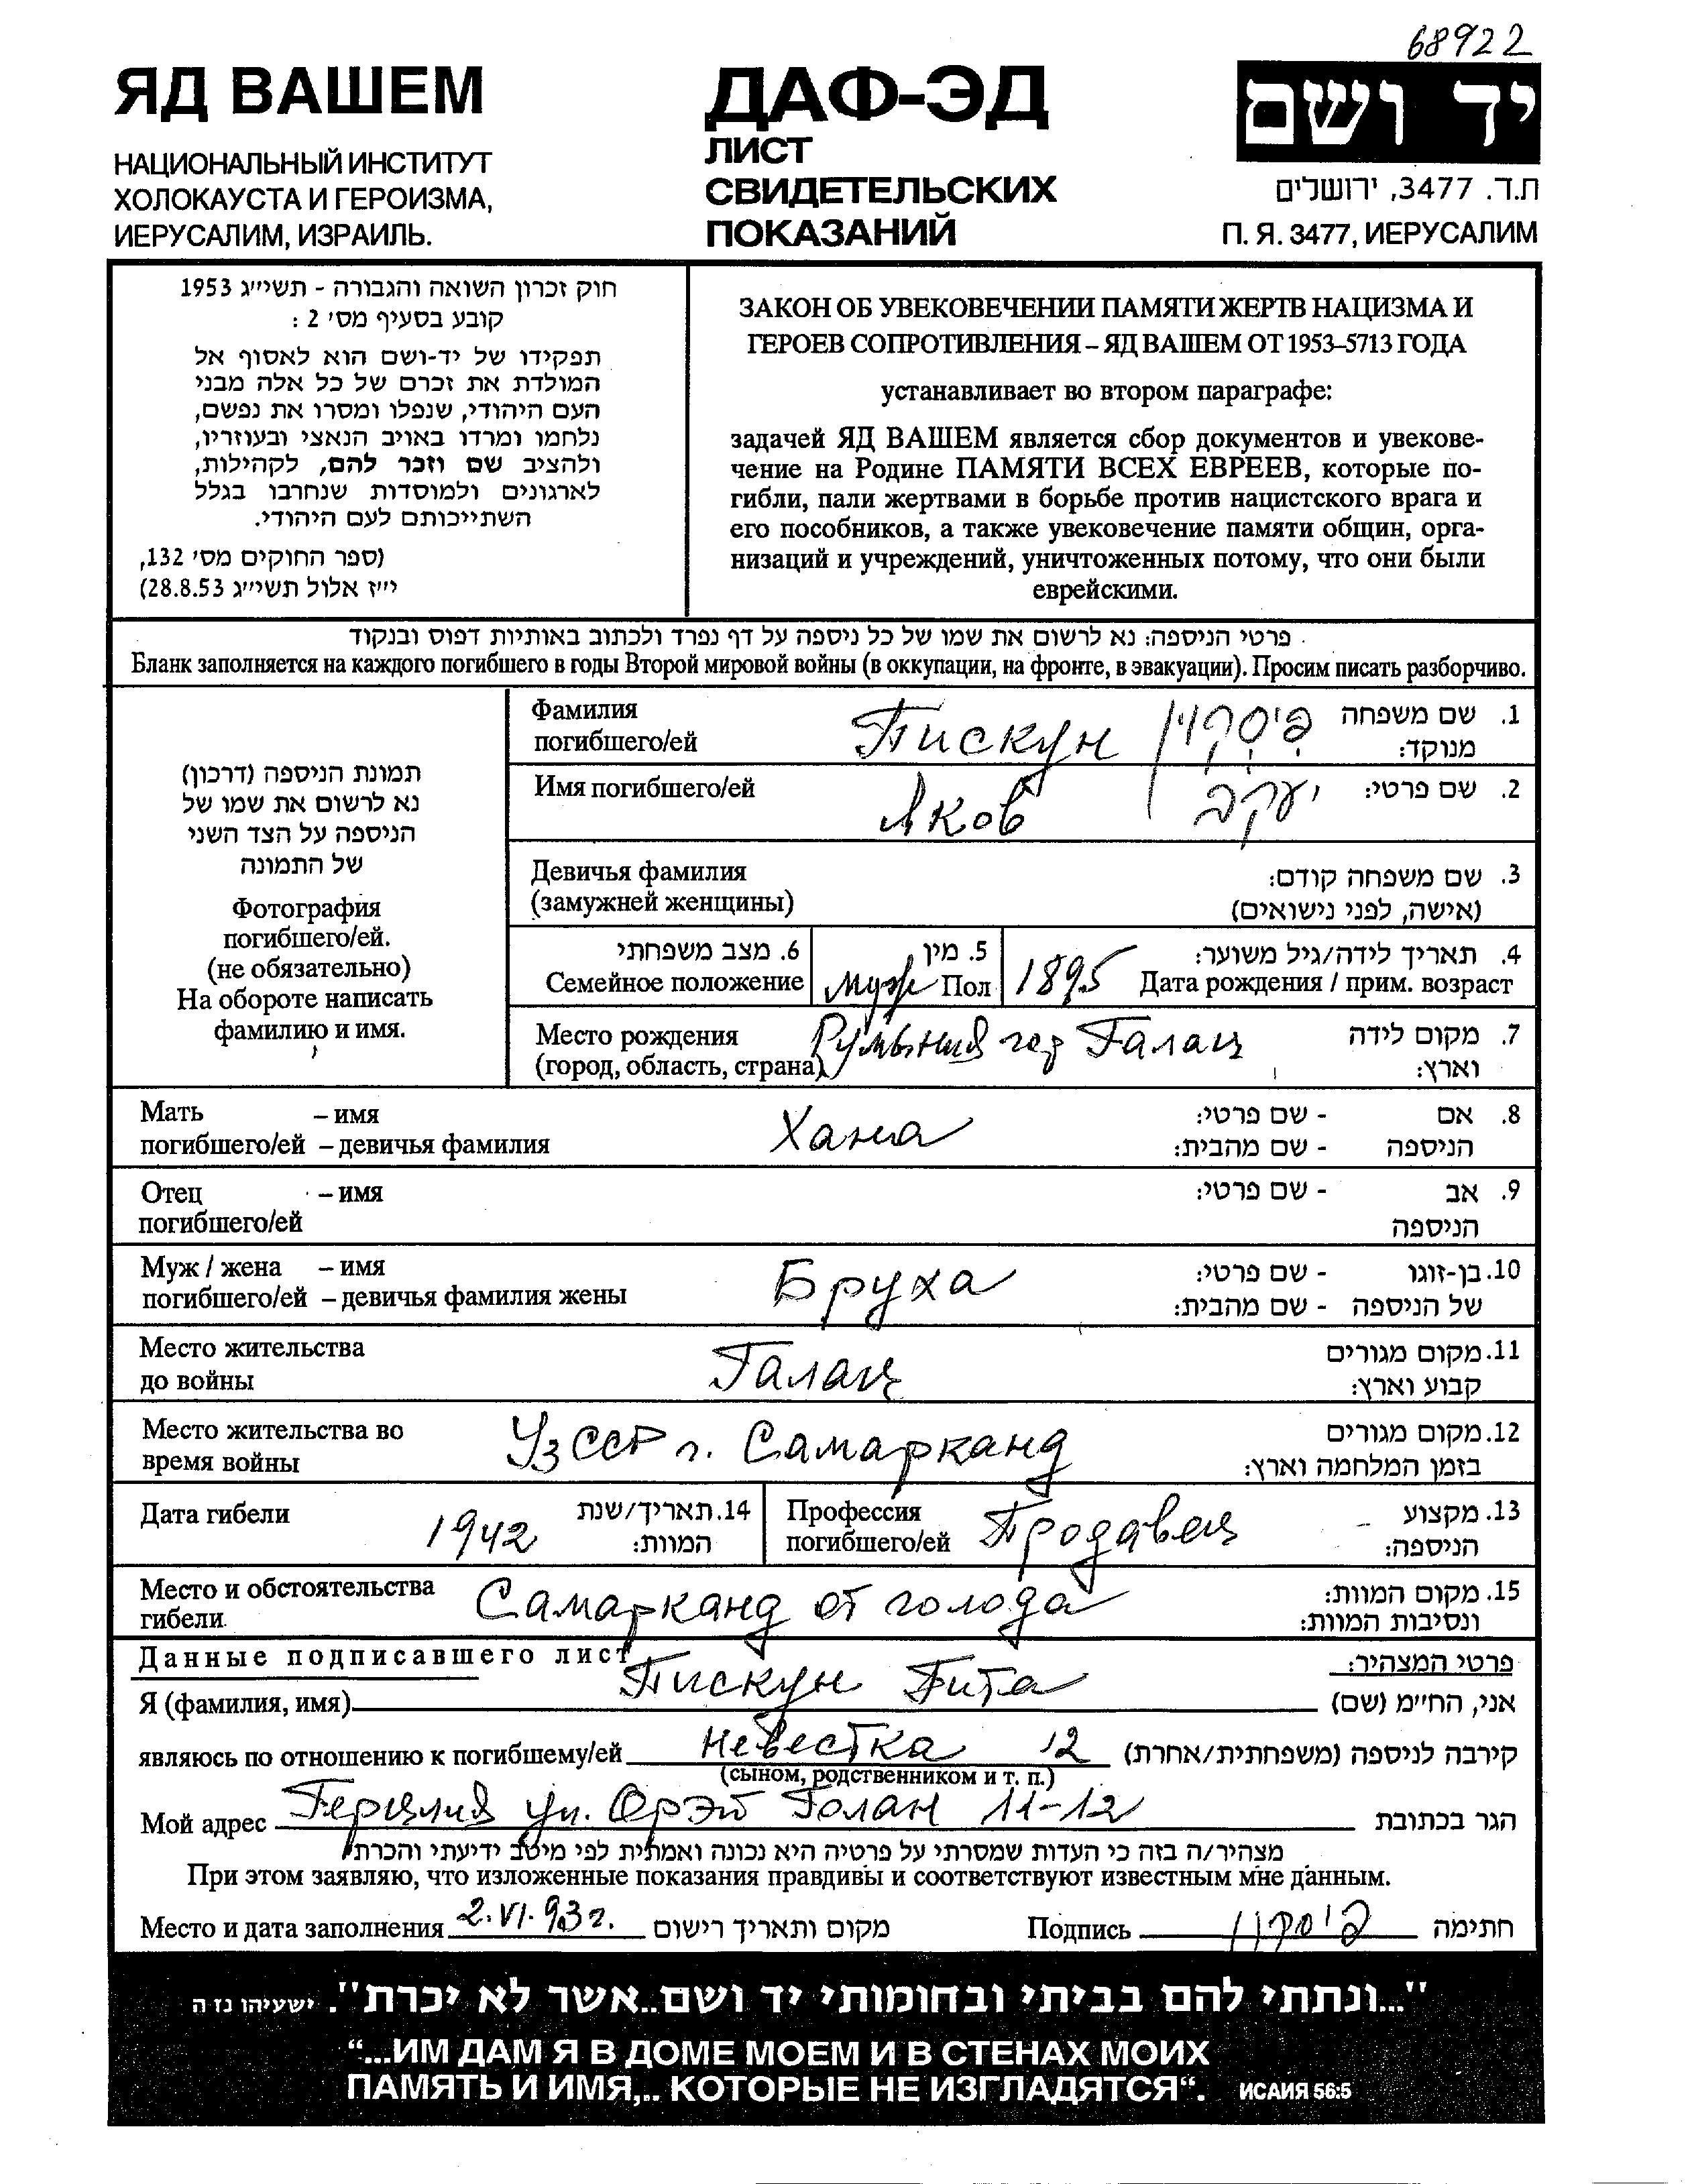 68922
ЯД ВАШЕМ
НАЦИОНАЛЬНЫЙ ИНСТИТУТ
ХОЛОКАУСТА И ГЕРОИЗМА,
ИЕРУСАЛИМ, ИЗРАИЛЬ.
ДАФ-ЭД
ЛИСТ
СВИДЕТЕЛЬСКИХ
ПОКАЗАНИЙ
יד ושם
ת.ד. 3477, ירושלים
П. Я. 3477, ИЕРУСАЛИМ
חוק זכרון השואה והגבורה - תשי״ג 1953
קובע בסעיף מס׳ 2 :
תפקידו של יד-ושם הוא לאסוף אל
המולדת את זכרם של כל אלה מבני
העם היהודי, שנפלו ומסרו את נפשם,
נלחמו ומרדו באויב הנאצי ובעוזריו,
ולהציב שם וזכר להם, לקהילות,
לארגונים ולמוסדות שנחרבו בגלל
השתייכותם לעם היהודי.
(ספר החוקים מס׳ 132,
י״ז אלול תשי״ג 28.8.53)
ЗАКОН ОБ УВЕКОВЕЧЕНИИ ПАМЯТИ ЖЕРТВ НАЦИЗМА И
ГЕРОЕВ СОПРОТИВЛЕНИЯ – ЯД ВАШЕМ ОТ 1953–5713 ГОДА
устанавливает во втором параграфе:
задачей ЯД ВАШЕМ является сбор документов и увекове-
чение на Родине ПАМЯТИ ВСЕХ ЕВРЕЕВ, которые по-
гибли, пали жертвами в борьбе против нацистского врага и
его пособников, а также увековечение памяти общин, орга-
низаций и учреждений, уничтоженных потому, что они были
еврейскими.
פרטי הניספה: נא לרשום את שמו של כל ניספה על דף נפרד ולכתוב באותיות דפוס ובנקוד
Бланк заполняется на каждого погибшего в годы Второй мировой войны (в оккупации, на фронте, в эвакуации). Просим писать разборчиво.
תמונת הניספה (דרכון)
נא לרשום את שמו של
הניספה על הצד השני
של התמונה
Фотография
погибшего/ей.
(не обязательно)
На обороте написать
фамилию и имя.
Фамилия
погибшего/ей
Пискун פיסקון
1. שם משפחה
מנוקד:
Имя погибшего/ей
Яков יעקב
2. שם פרטי:
Девичья фамилия
(замужней женщины)
3. שם משפחה קודם:
(אישה, לפני נישואים)
6. מצב משפחתי
Семейное положение
5. מין
муж Пол
4. תאריך לידה/גיל משוער:
1895 Дата рождения / прим. возраст
Место рождения
(город, область, страна)
Румыния гор Галац
7. מקום לידה
וארץ:
Мать – имя
погибшего/ей – девичья фамилия
Хана
8. אם - שם פרטי:
הניספה - שם מהבית:
Отец – имя
погибшего/ей
9. אב - שם פרטי:
הניספה
Муж / жена – имя
погибшего/ей – девичья фамилия жены
Бруха
10. בן-זוגו - שם פרטי:
של הניספה - שם מהבית:
Место жительства
до войны
Галац
11. מקום מגורים
קבוע וארץ:
Место жительства во
время войны
УзССР г. Самарканд
12. מקום מגורים
בזמן המלחמה וארץ:
Дата гибели
1942
14. תאריך/שנת
המוות:
Профессия
погибшего/ей
Продавец
13. מקצוע
הניספה:
Место и обстоятельства
гибели
Самарканд от голода
15. מקום המוות:
ונסיבות המוות:
Данные подписавшего лист
פרטי המצהיר:
Я (фамилия, имя) Пискун Гита אני, החי״מ (שם)
являюсь по отношению к погибшему/ей невестка 12 קירבה לניספה (משפחתית/אחרת)
(сыном, родственником и т. п.)
Мой адрес Герцлия ул. Орэй Голан 11-12 הגר בכתובת
מצהיר/ה בזה כי העדות שמסרתי על פרטיה היא נכונה ואמתית לפי מיטב ידיעתי והכרתי
При этом заявляю, что изложенные показания правдивы и соответствуют известным мне данным.
Место и дата заполнения 2.VI.93г. מקום ותאריך רישום Подпись פיסקון חתימה
"...ונתתי להם בביתי ובחומותי יד ושם..אשר לא יכרת". ישעיהו נז ה
“...ИМ ДАМ Я В ДОМЕ МОЕМ И В СТЕНАХ МОИХ
ПАМЯТЬ И ИМЯ,.. КОТОРЫЕ НЕ ИЗГЛАДЯТСЯ“. ИСАИЯ 56:5